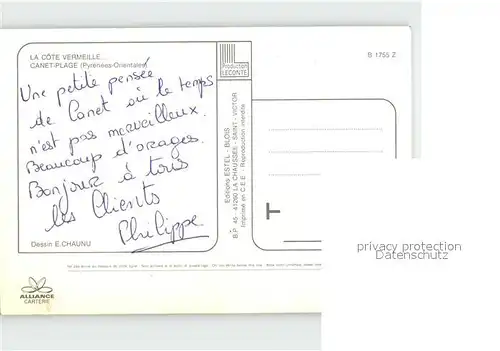 LA CÔTE VERMEILLE...
CANET-PLAGE (Pyrénées-Orientales)
Une petite pensée
de Canet où le temps
n'est pas merveilleux.
Beaucoup d'orages.
Bonjour à tous
les Clients
Philippe
Dessin E.CHAUNU
ALLIANCE
CARTERIE
Production
LECONTE
Editions ESTEL - BLOIS
B.P. 45 - 41260 LA CHAUSSÉE - SAINT - VICTOR
Imprimé en C.E.E. - Reproduction interdite
B 1755 Z
privacy protection
Datenschutz